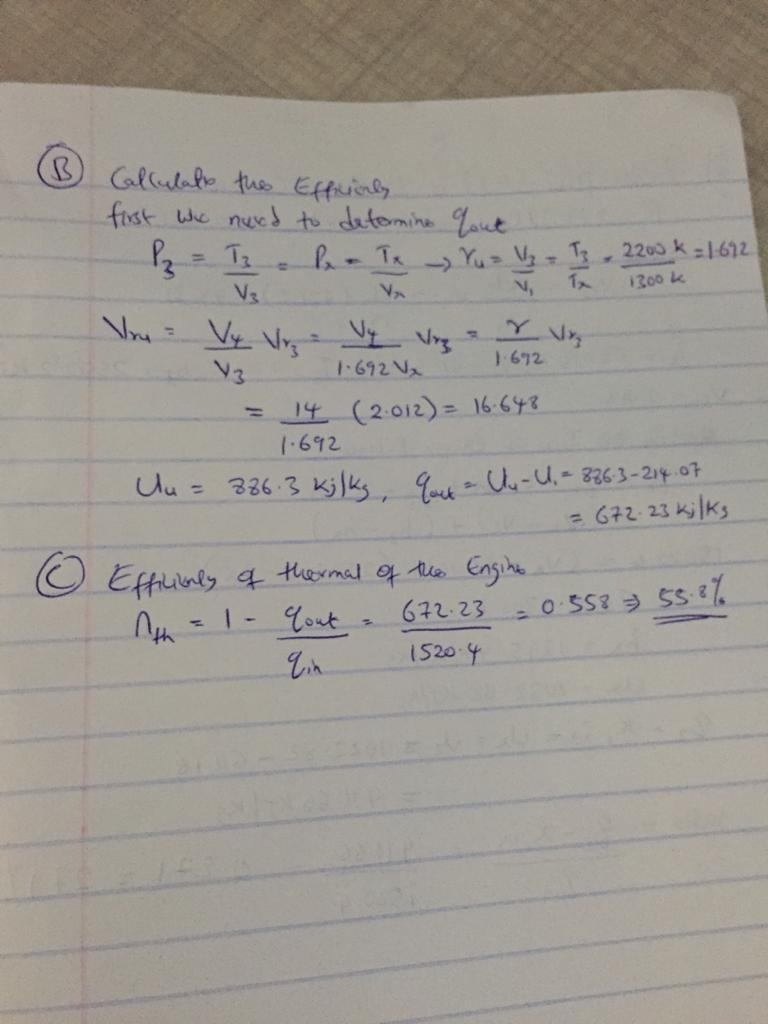 B Calculate the Efficiency
first we need to determine qout
P3 = T3/V3 = Px = Tx/Vx → ru = V3/V1 = T3/Tx = 2200 k/1300 k = 1.692
Vr4 = V4/V3 Vr3 = V4/1.692 Vx Vr3 = r/1.692 Vr3
= 14/1.692 (2.012) = 16.648
Uu = 886.3 kj/kg, qout = Uu - U1 = 886.3 - 214.07
= 672.23 kj/kg
C Efficiency of thermal of the Engine
ηth = 1 - qout/qin = 672.23/1520.4 = 0.558 ⇒ 55.8%